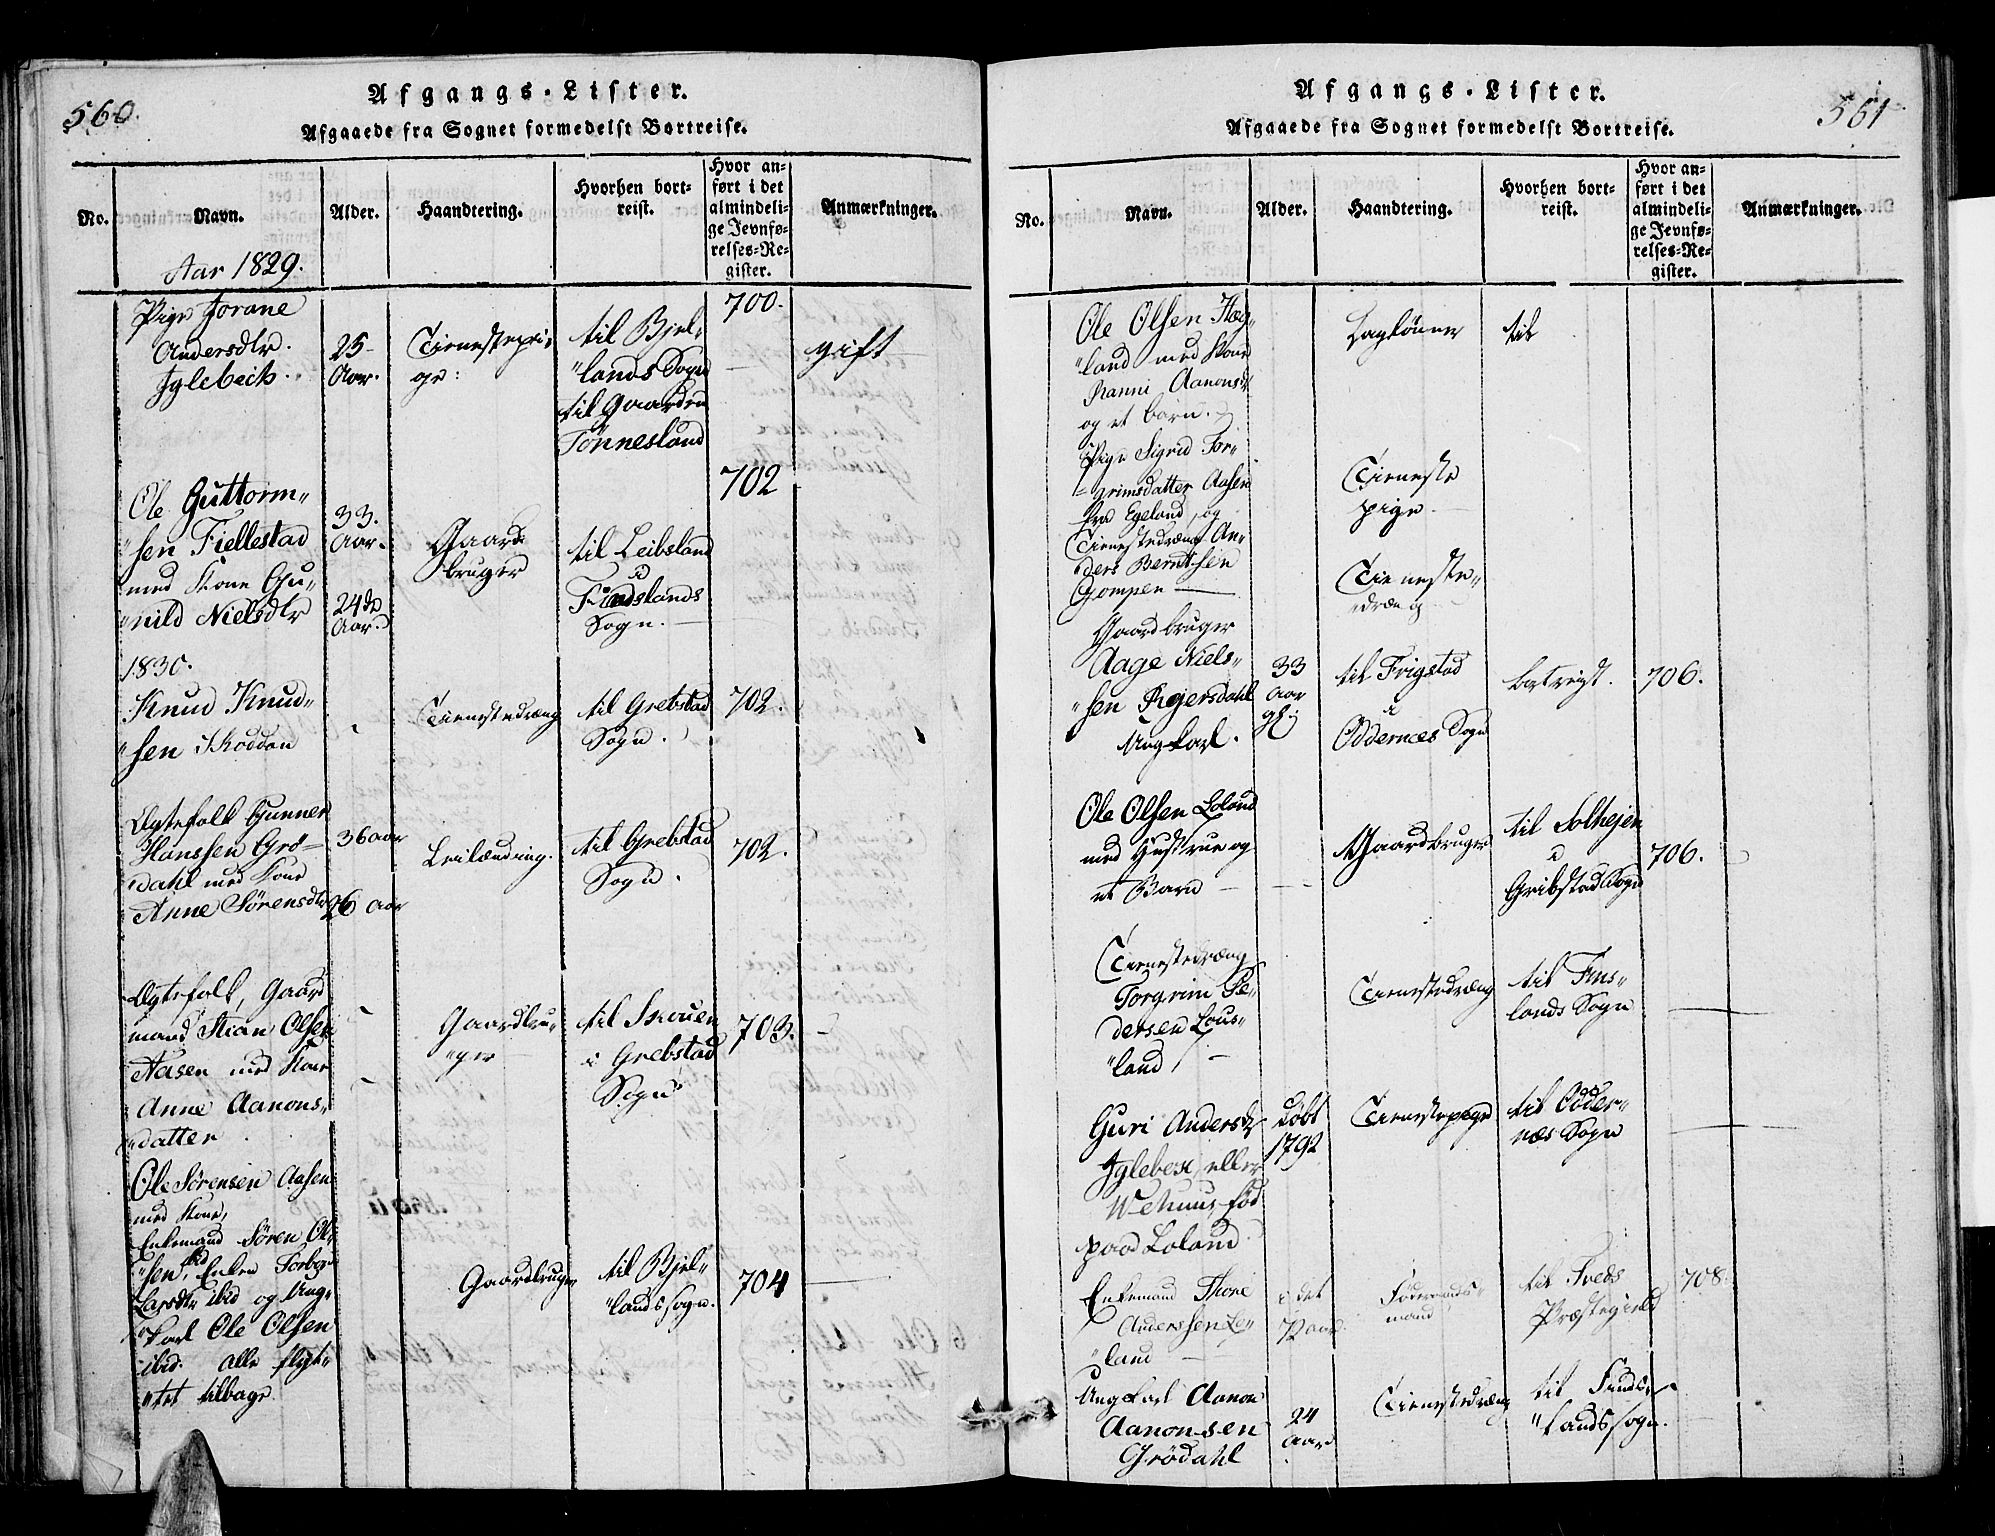 560.
Afgangs-Lister.
Afgaaede fra Sognet formedelst Bortreise.
No.
Navn.
Alder.
Haandtering.
Hvorhen bort-
reist.
Hvor an-
ført i det
almindeli-
ge Jevnfø-
relses-Re-
gister.
Anmærkninger.
Aar 1829.
Pige Jorane
Andersdtr.
Iglebeck.
25
Aar.
Tienestepi-
ge:
til Bjel-
"lands Sogn
til Gaarden
Tønnesland
700.
gift
Ole Guttorm-
"sen Fiellestad
med Kone Gu-
"nild Nielsdtr
33.
Aar.
24de
Aar.
Gaard-
bruger
til Leibsland
i
Findslands
Sogn.
702
1830.
Knud Knud-
"sen Skoddan
Tienestedræng
til Grebstad
Sogn.
702.
Ægtefolk Gunner
Hanssen Grø-
dahl med Kone
Anne Sørensdtr
36 aar
26 aar
Leilænding.
til Grebstad
Sogn.
702.
Ægtefolk, Gaard
mand Stian Olsen
Aasen med Kone
Anne Aanons-
"datter
Gaardbru-
"ger
til Skouen
i Grebstad
Sogn
703.
Ole Sørensen Aasen
med Kone,
Enkemand Søren Ol-
"sen, ibid, Enken Torbor
Larsdtr ibid og Ung-
"karl Ole Olsen
ibid. alle flyt-
"tet tilbage.
Gaardbruger
til Bjel-
"lands sogn.
704
561
Afgangs-Lister.
Afgaaede fra Sognet formedelst Bortreise.
No.
Navn.
Alder.
Haandtering.
Hvorhen bort-
reist.
Hvor an-
ført i det
almindeli-
ge Jevnfø-
relses-Re-
gister.
Anmærkninger.
Ole Olsen Hæg-
"land med Kone
Ranni Aanonsd
og et barn.
Daglønner
til
Pige Sigrid Tor-
"grimsdatter Aasen
fra Egeland, og
Tienestedræng An-
ders Berntsen
Gompen
Tieneste
pige
Tieneste-
"dræng
Gaardbruger
Aage Niels-
"sen Rejersdahl
Ungkarl.
33
Aar
gl.
til Frigstad
i
Oddernæs Sogn
bortreist.
706.
Ole Olsen Loland
med Hustrue og
et Barn
Gaardbruger
til Solhejen
i
Gribstad Sogn
706.
Tienestedræng
Torgrim Pe-
dersen Lous-
"land
Tienestedræng
til Fins-
lands Sogn
Guri Andersdtr
Iglebex, eller
Wehuus, fød
paa Loland
Døbt
1792
Tienestepige
til Odder-
næs Sogn
Enkemand Thore
Anderssen Le-
"land
i det
72 aar.
Føderaads-
mand
til Tveds
Præstegield
708.
Ungkarl Aanon
Aanonsen
Grødahl
24
Aar
Tienestedræng
til Finds-
"lands sogn.